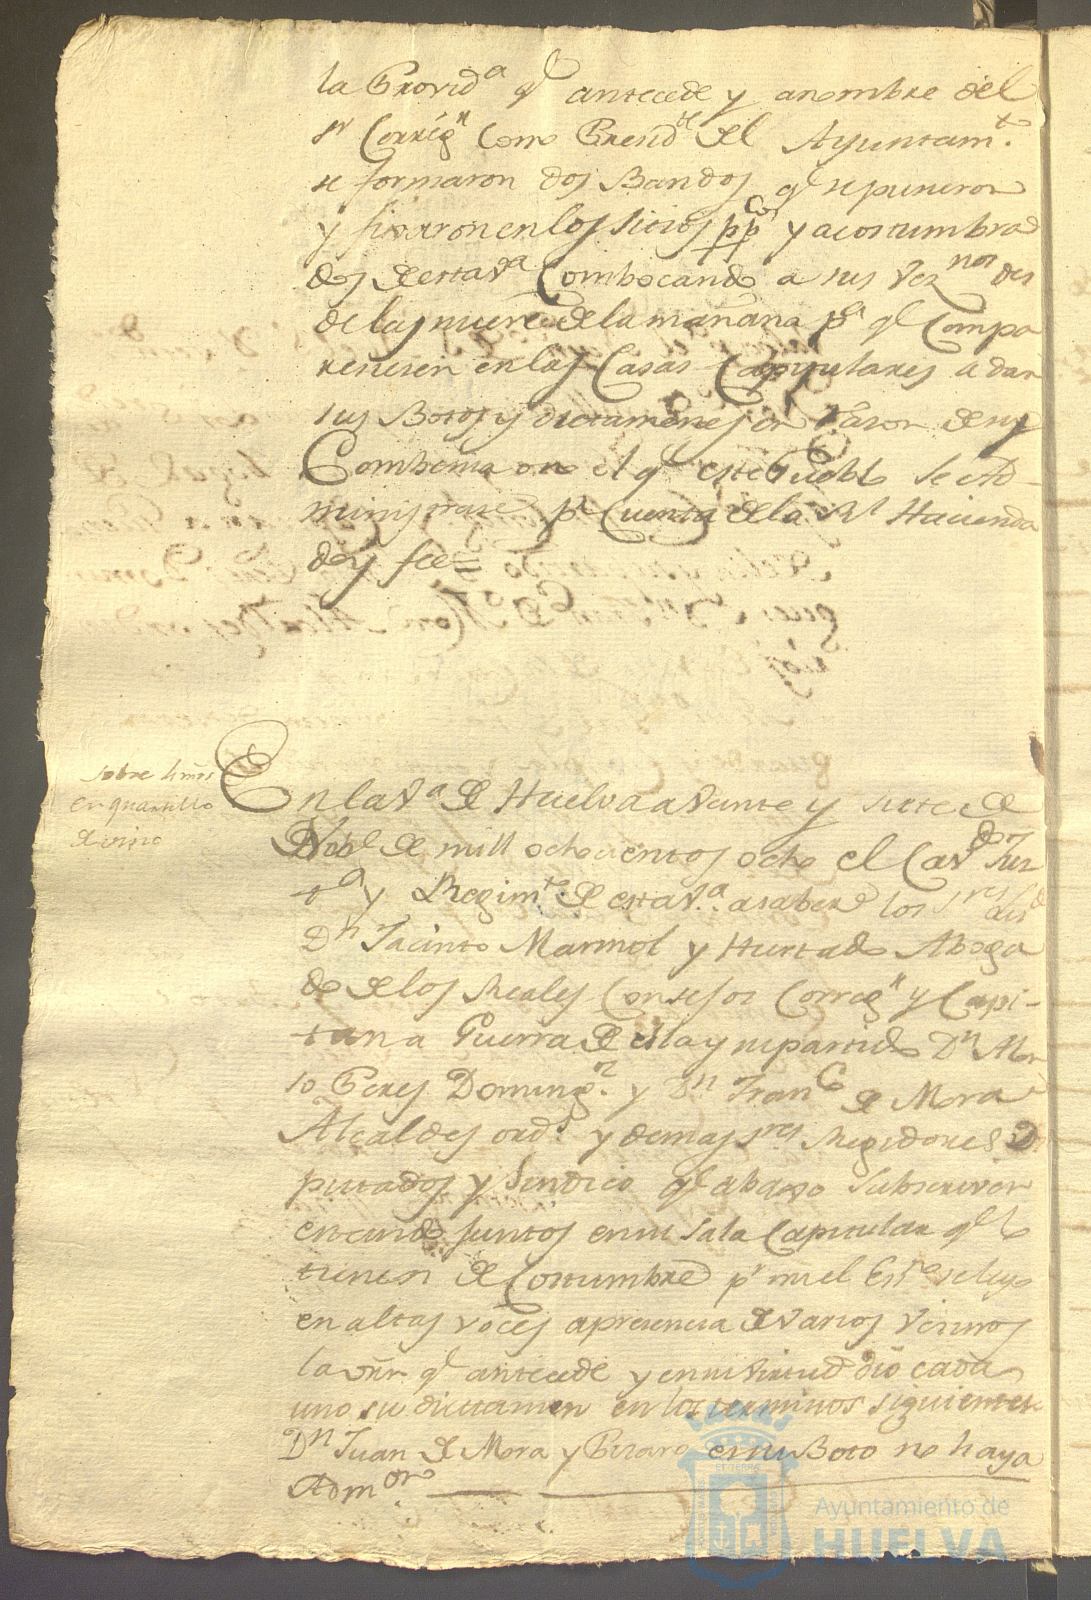 la Provid.a q.e antecede y anombre del
S.r Correg.n como Presid.te del Ayuntam.to
se formaron dos Bandos q.e sepusieron
y fixaron en los sitios pp.cos y acostumbra
dos de esta V.a Combocando a sus vez.nos des
de las nueve de la mañana p.a q.e Compa
reciesen en las Casas Capitulares a dar
sus Botos y dictamenes en razon de si
Combenia o no el q.e este Pueblo se Ad-
ministrase p.r Cuenta de la R.l Hacienda
doy fee=
sobre
en quartillo
de vino
En la V.a de Huelva a Veinte y siete de
Nob.e de mill ochocientos ocho el Cav.do Jus
t.a y Regim.to de esta V.a asaber los S.res
D.n Jacinto Marmol y Hurtado Aboga
do de los Reales Consejos Correg.n y Capi-
tan a Guerra de ella y su partido D.n
Peres Doming.z y D.n Fran.co de Mora
Alcaldes ord.s y demas S.res Regidores D
putados y Sindico q.e abaxo Subscriven
estando juntos en su Sala Capitular q.e lo
tienen de Costumbre p.r mi el Es.no se leyo
en altas voces apresencia de Varios Vecinos
la orn q.e antecede y en su virtud dio cada
uno su dictamen en los terminos siguientes
D.n Juan de Mora y Pizaro en su Boto no haya
Adm.or
Ayuntamiento de
HUELVA